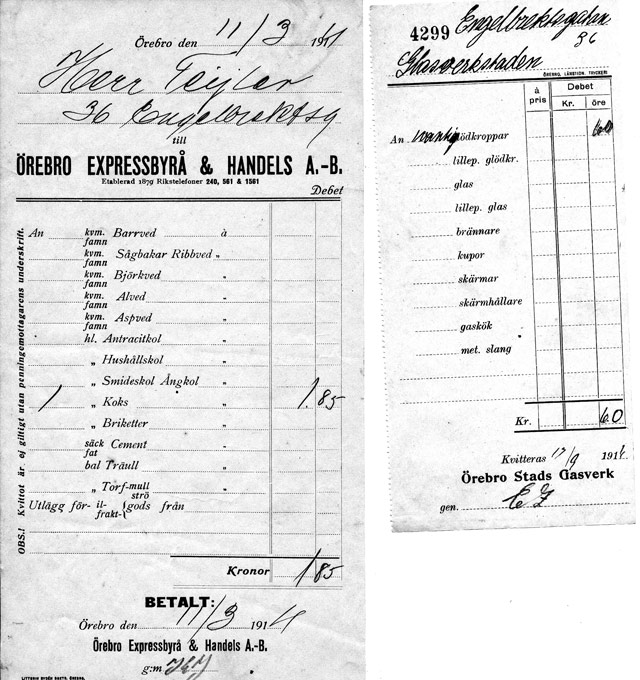 Örebro den 11/3 1914
Herr Teijler
36 Engelbrektsg
till
ÖREBRO EXPRESSBYRÅ & HANDELS A.-B.
Etablerad 1879 Rikstelefoner 240, 561 & 1561
Debet
OBS.! Kvittot är ej giltigt utan penningemottagarens underskrift.
An kvm. famn Barrved à
kvm. famn Sågbakar Ribbved „
kvm. famn Björkved „
kvm. famn Alved „
kvm. famn Aspved „
hl. Antracitkol „
„ Hushållskol „
„ Smideskol Ångkol „
1 „ Koks „ 1.85
„ Briketter „
säck fat Cement „
bal Träull „
„ Torf-mull strö „
Utlägg för il- frakt- gods från
Kronor 1.85
BETALT:
Örebro den 11/3 1914
Örebro Expressbyrå & Handels A.-B.
g:m
4299 Engelbrektsgatan
36
Glasverkstaden
ÖREBRO, LÄNSTIDN. TRYCKERI
à pris Debet
Kr. öre
An glödkroppar 60
lillep. glödkr.
glas
lillep. glas
brännare
kupor
skärmar
skärmhållare
gaskök
met. slang
Kr. 60
Kvitteras 17/9 1914
Örebro Stads Gasverk
gen.